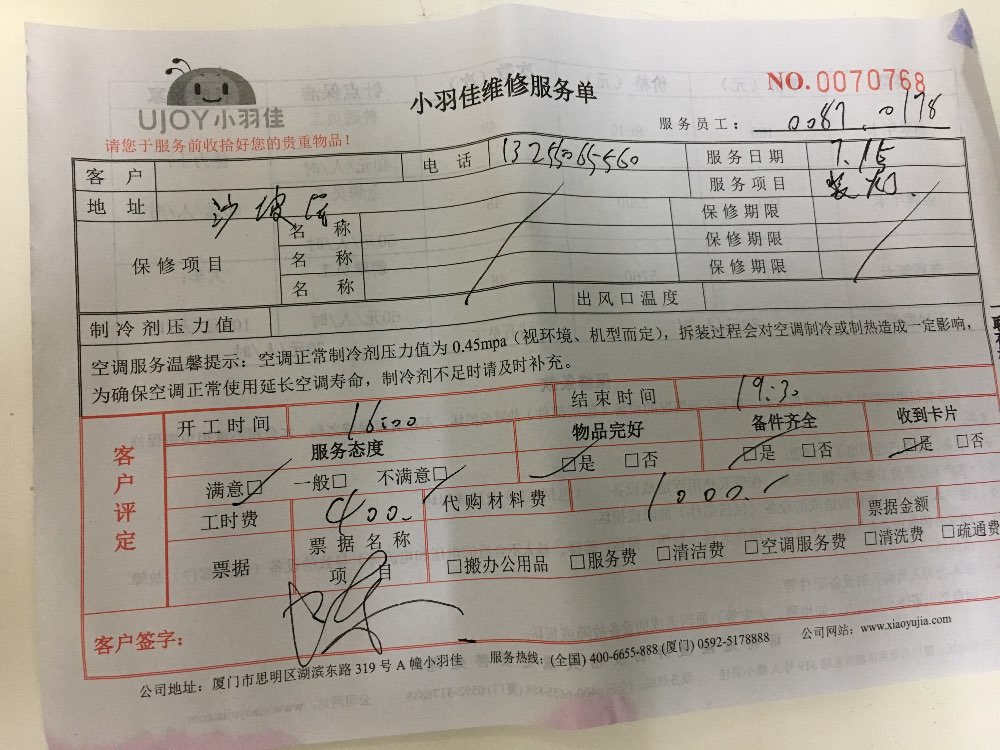 UJOY小羽佳
小羽佳维修服务单
NO.0070768
请您于服务前收拾好您的贵重物品！
服务员工： 0087 0178
客户 电话 13255065560 服务日期 7.15
地址 沙坡尾 服务项目 装灯
保修项目 名称 保修期限
名称 保修期限
名称 保修期限
制冷剂压力值 出风口温度
空调服务温馨提示：空调正常制冷剂压力值为 0.45mpa（视环境、机型而定），拆装过程会对空调制冷或制热造成一定影响，
为确保空调正常使用延长空调寿命，制冷剂不足时请及时补充。
客户评定
开工时间 16:00 结束时间 19:30
服务态度 物品完好 备件齐全 收到卡片
满意□ 一般□ 不满意□ □是 □否 □是 □否 □是 □否
工时费 400. 代购材料费 1000. 票据金额
票据 票据名称
项目 □搬办公用品 □服务费 □清洁费 □空调服务费 □清洗费 □疏通费
客户签字：
公司地址：厦门市思明区湖滨东路 319 号 A 幢小羽佳 服务热线：(全国) 400-6655-888 (厦门) 0592-5178888 公司网站：www.xiaoyujia.com